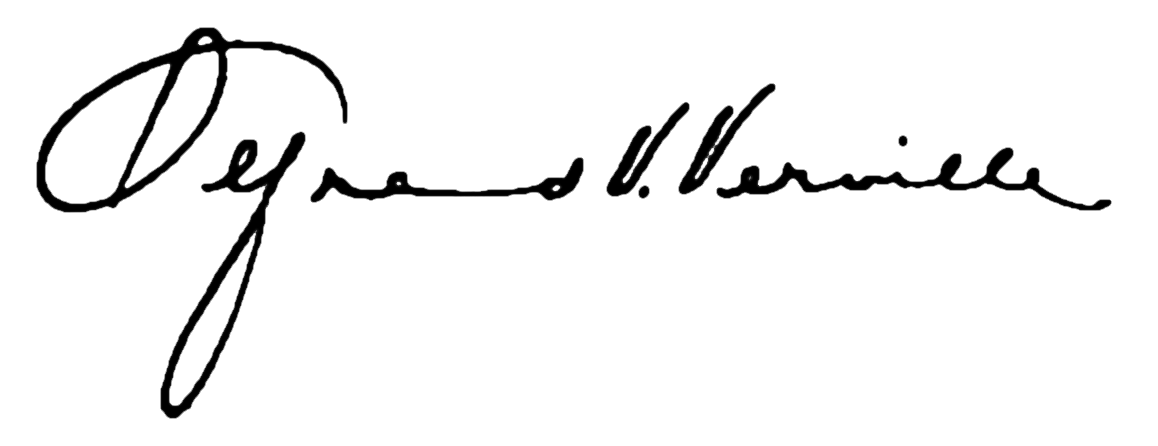 Alfred V. Verville